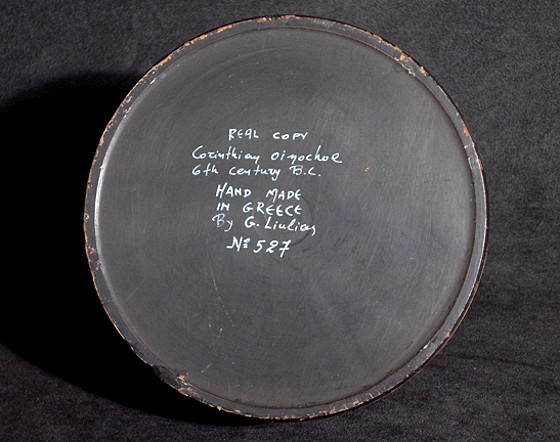 REAL COPY
Corinthian oinochoe
6th century B.C.
HAND MADE
IN GREECE
By G. Liulias
No 527